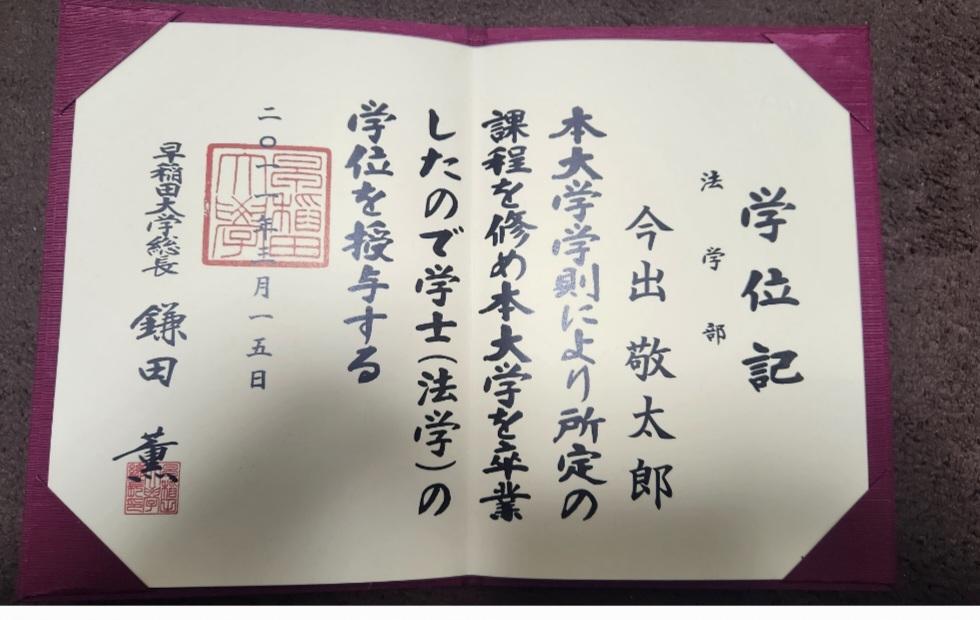 学位記
法学部
今出 敬太郎
本大学学則により所定の
課程を修め本大学を卒業
したので学士(法学)の
学位を授与する
二〇一一年三月一五日
早稲田大学総長 鎌田 薫
早稲田
大学